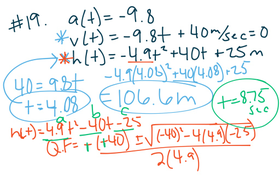 #19. a(t) = -9.8
*v(t) = -9.8t + 40 m/sec = 0
*h(t) = -4.9t² + 40t + 25 m
40 = 9.8t
t = 4.08
-4.9(4.08)² + 40(4.08) + 25
= 106.6 m
t = 8.75 sec
h(t) = 4.9t² - 40t - 25
a b c
± √(-40)² - 4(4.9)(-25)
2(4.9)